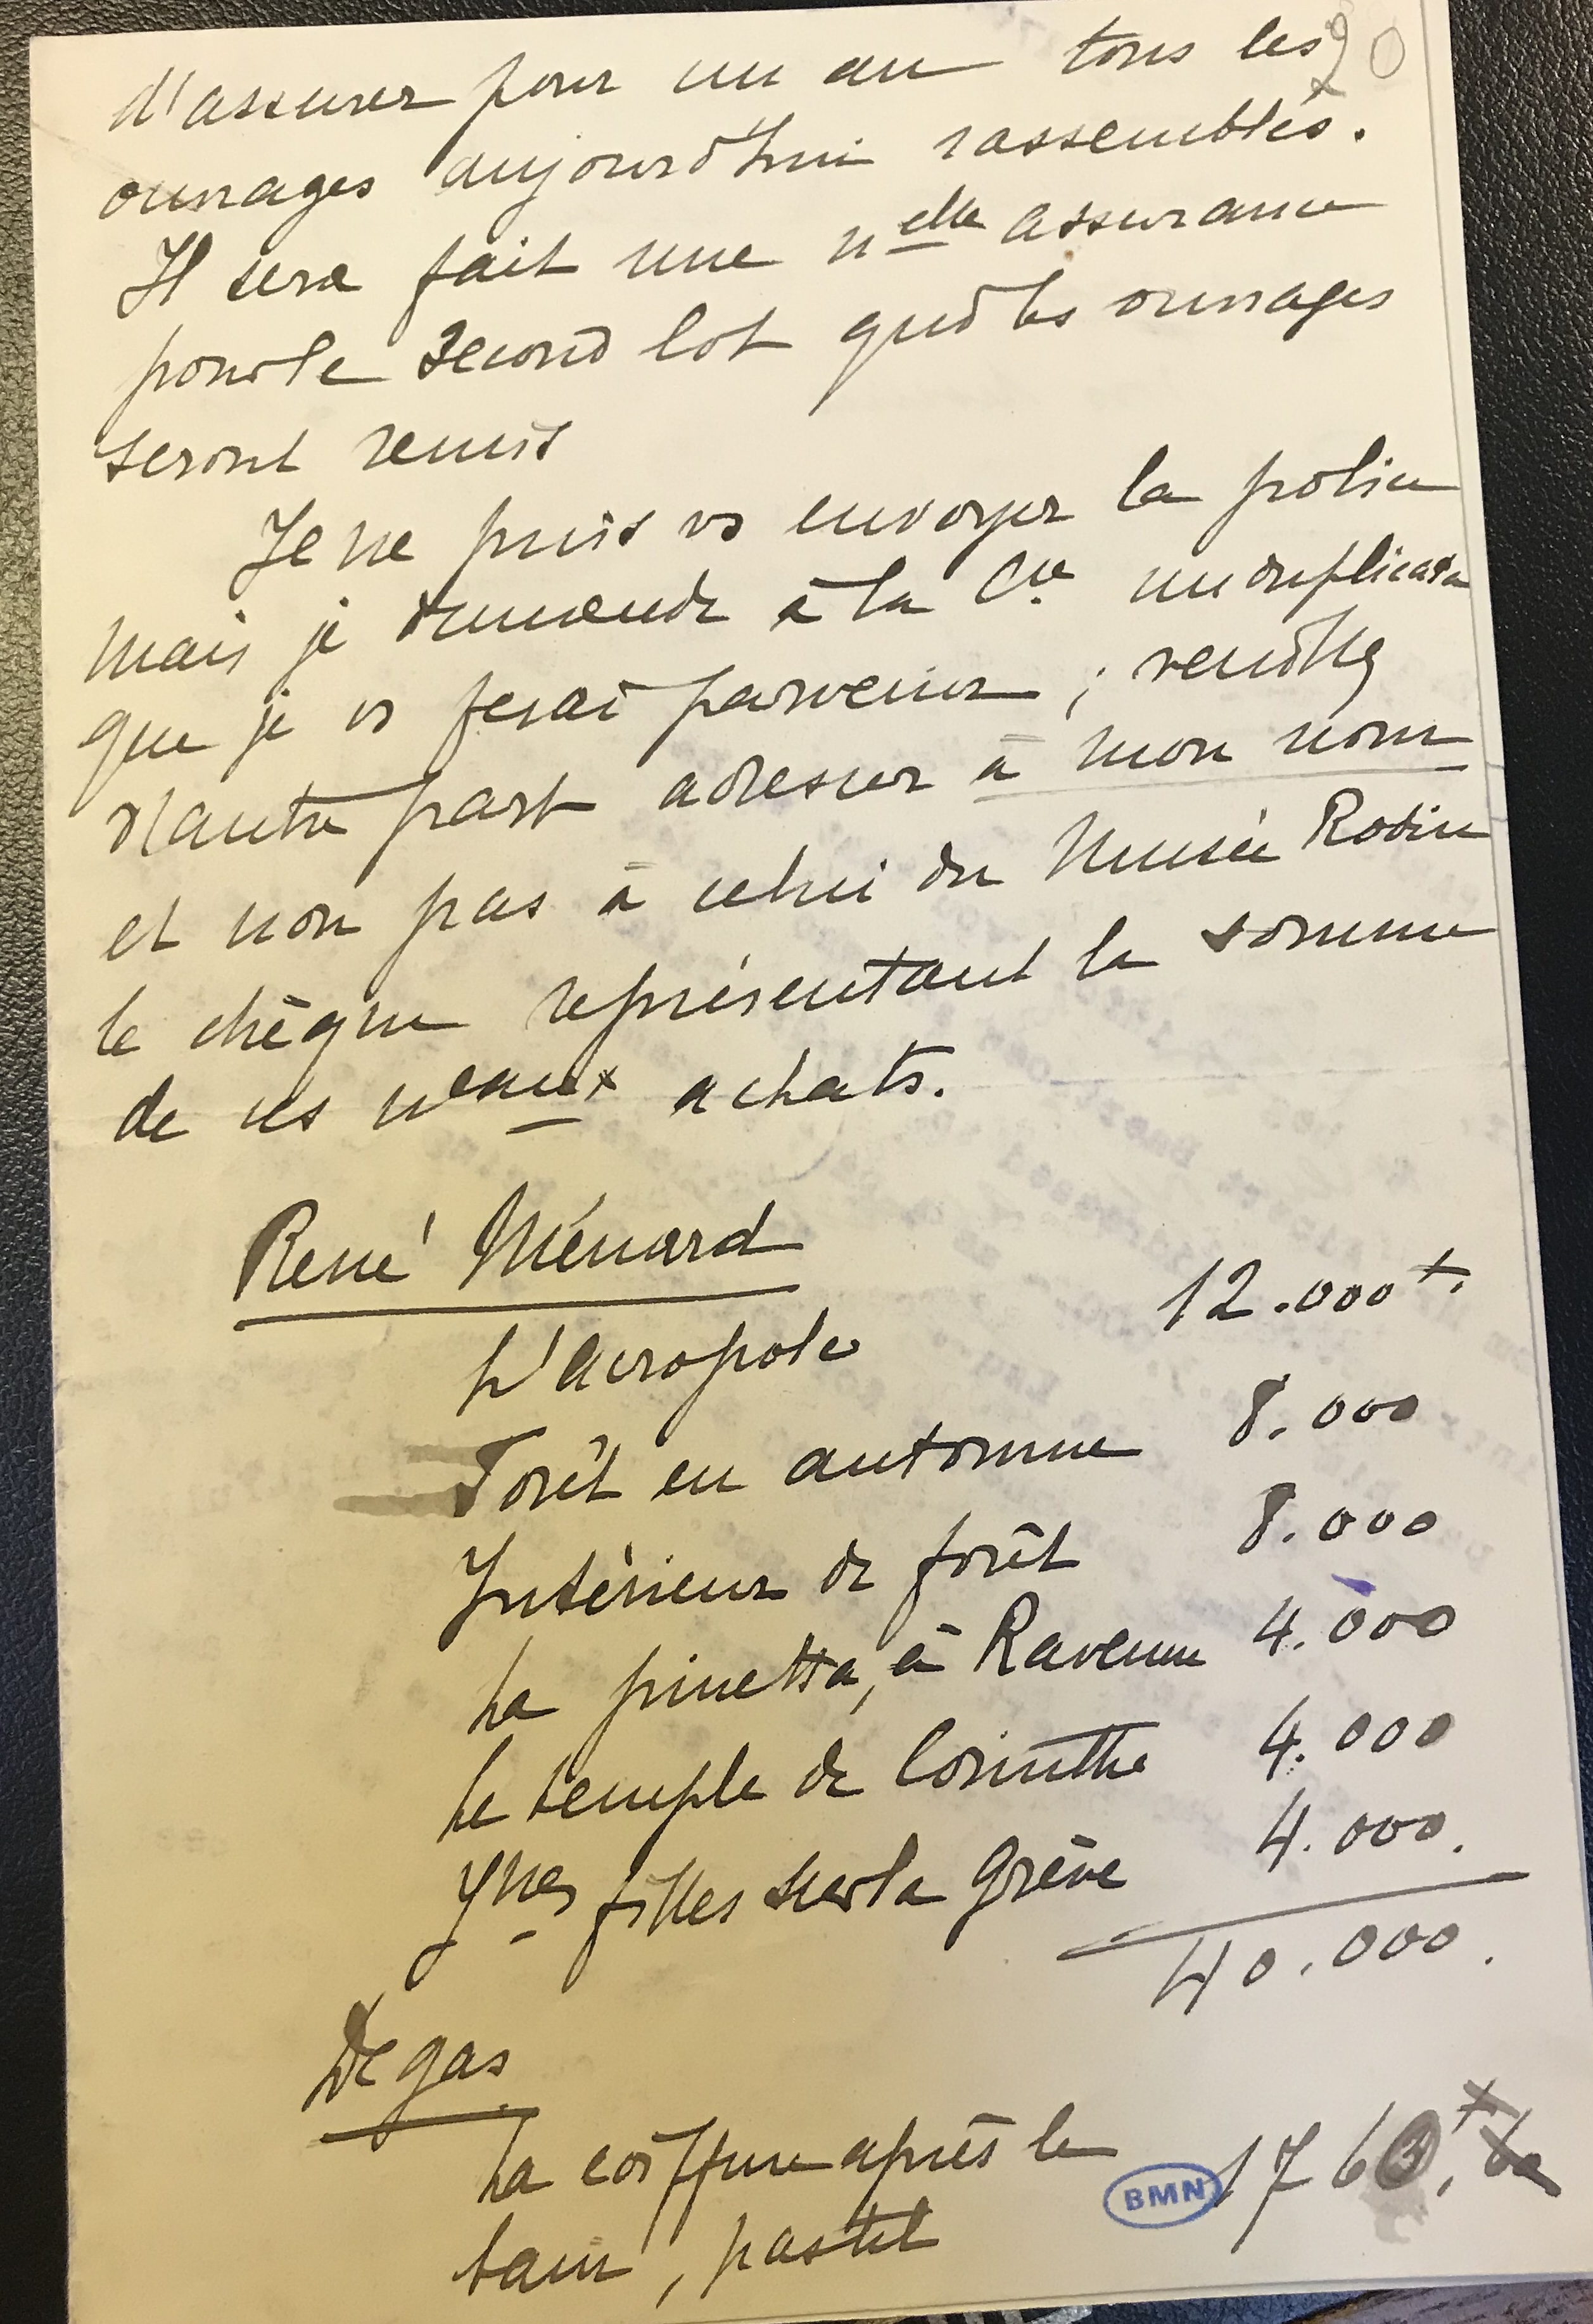 20
d'assurer pour un an tous les
ouvrages aujourd'hui rassemblés.
Il sera fait une nelle assurance
pour le second lot qud les ouvrages
seront remis
Je ne puis vs envoyer la police
mais je demande à la Cie un duplicata
que je vs ferai parvenir ; veuillez
d'autre part adresser à mon nom
et non pas à celui du Musée Rodin
le chèque représentant la somme
de ces nveaux achats.
René Ménard
L'acropole 12.000 f.
Forêt en automne 8.000
Intérieur de forêt 8.000
La pinetta, à Ravenne 4.000
Le temple de Corinthe 4.000
Jnes filles sur la grève 4.000.
40.000.
Degas
La coiffure après le
bain, pastel
BMN